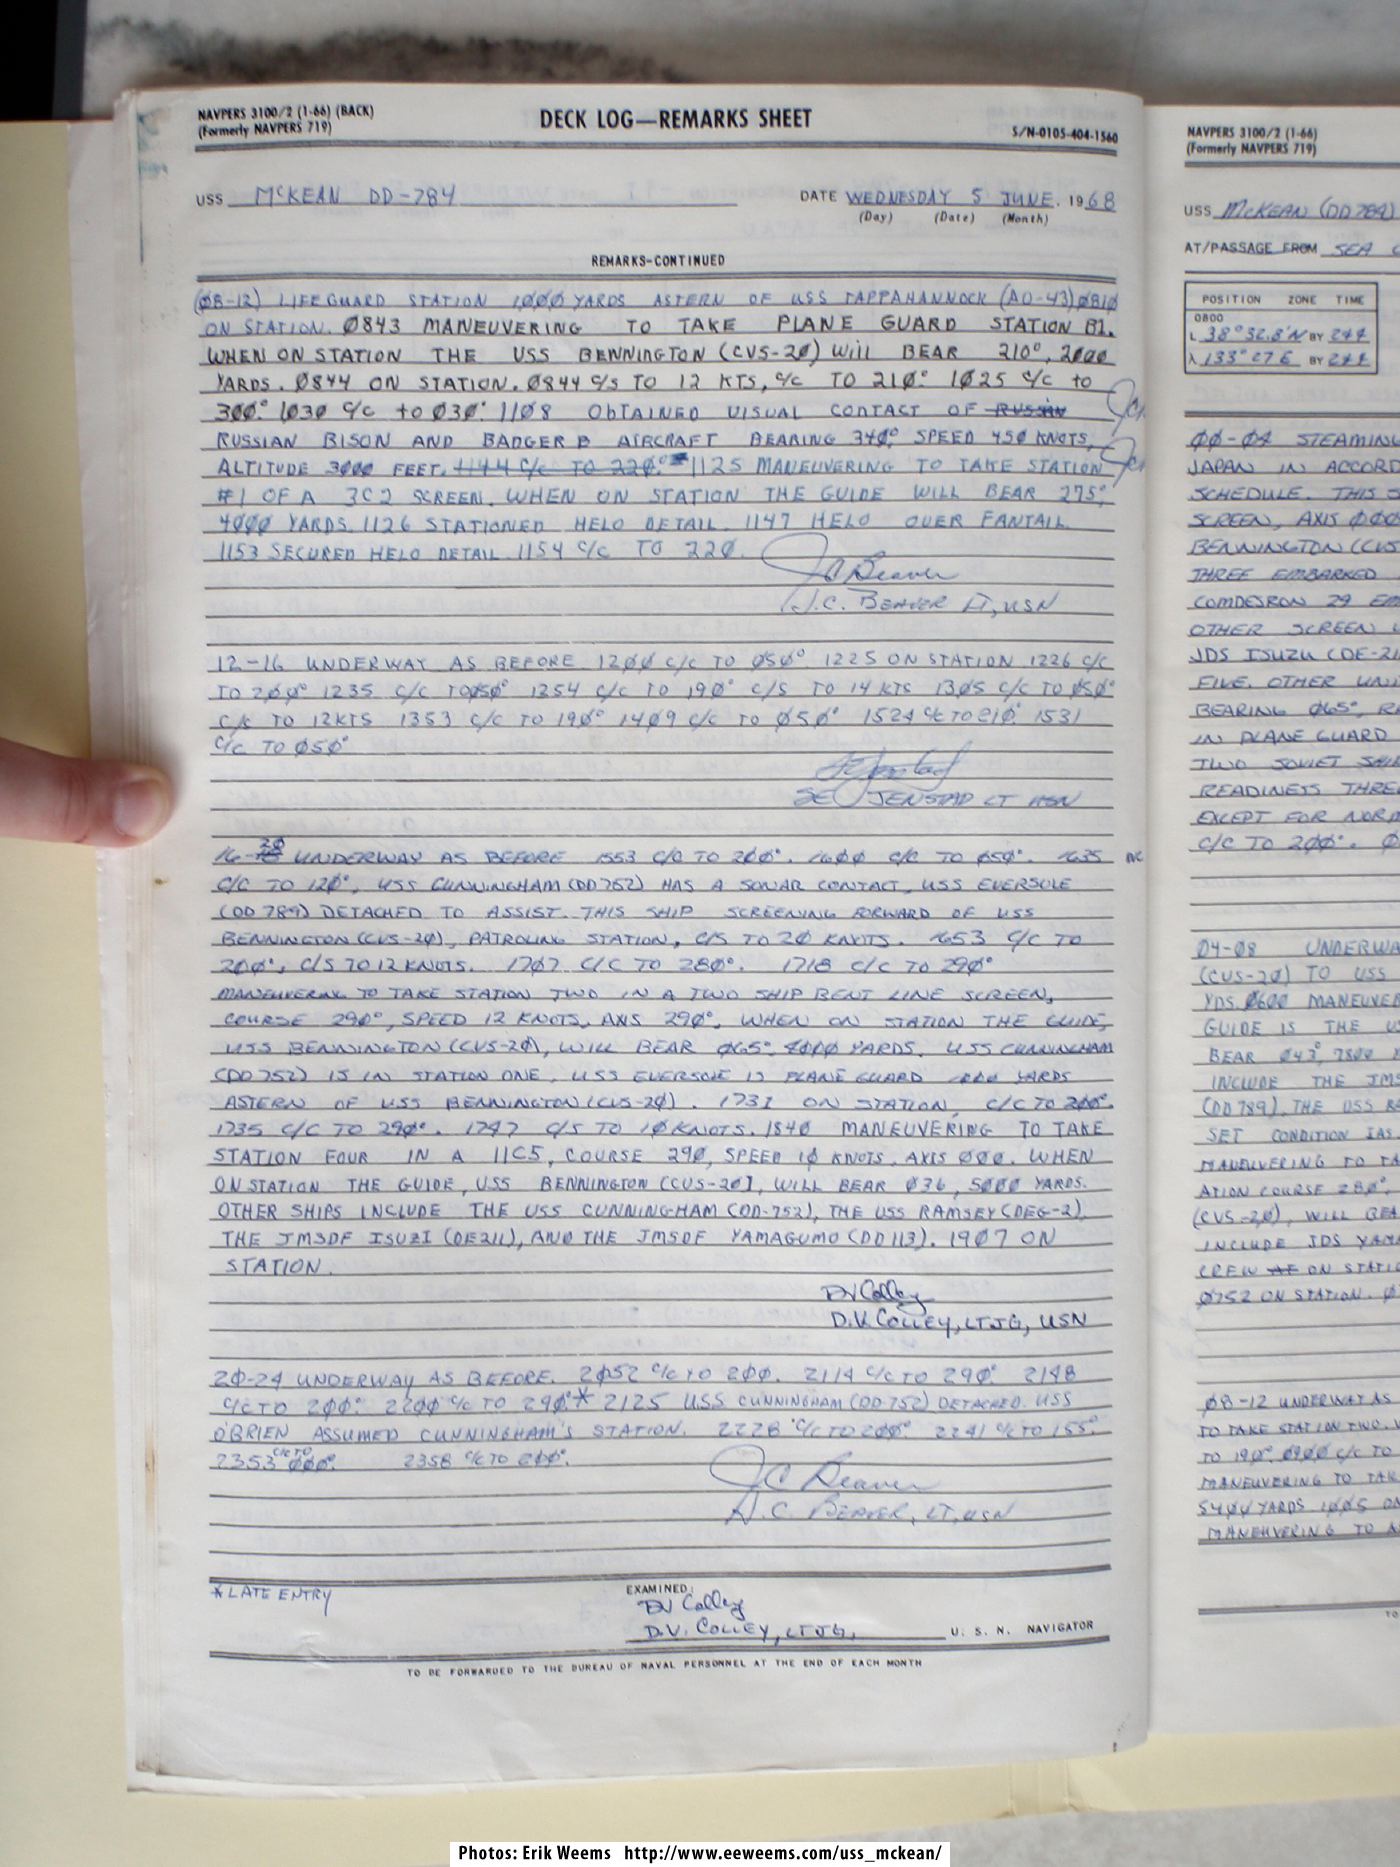 NAVPERS 3100/2 (1-66) (BACK)
(Formerly NAVPERS 719)
DECK LOG—REMARKS SHEET
S/N-0105-404-1560
USS McKEAN DD-784
DATE WEDNESDAY 5 JUNE, 1968
(Day) (Date) (Month)
REMARKS-CONTINUED
(08-12) LIFEGUARD STATION 1000 YARDS ASTERN OF USS TAPPAHANNOCK (AO-43) 0810
ON STATION. 0843 MANEUVERING TO TAKE PLANE GUARD STATION B1.
WHEN ON STATION THE USS BENNINGTON (CVS-20) WILL BEAR 210°, 2000
YARDS. 0844 ON STATION. 0844 C/S TO 12 KTS, C/C TO 210°. 1025 C/C to
300°. 1030 C/C to 030°. 1108 OBTAINED VISUAL CONTACT OF RUSSIAN
RUSSIAN BISON AND BADGER B AIRCRAFT BEARING 340°. SPEED 450 KNOTS,
ALTITUDE 3000 FEET. 1144 C/C TO 220°. 1125 MANEUVERING TO TAKE STATION
#1 OF A 3C2 SCREEN. WHEN ON STATION THE GUIDE WILL BEAR 275°,
4000 YARDS. 1126 STATIONED HELO DETAIL. 1147 HELO OVER FANTAIL.
1153 SECURED HELO DETAIL. 1154 C/C TO 220.
JC Beaver
J.C. BEAVER LT, USN
12-16 UNDERWAY AS BEFORE 1200 C/C TO 050° 1225 ON STATION 1226 C/C
TO 200° 1235 C/C TO 050° 1254 C/C TO 190° C/S TO 14 KTS 1305 C/C TO 050°
C/S TO 12KTS 1353 C/C TO 190° 1409 C/C TO 050° 1524 C/C TO 210° 1531
C/C TO 050°
SE JENSTAD LT USN
16-20 UNDERWAY AS BEFORE 1553 C/C TO 200°. 1600 C/C TO 050°. 1635
C/C TO 120°, USS CUNNINGHAM (DD752) HAS A SONAR CONTACT, USS EVERSOLE
(DD 789) DETACHED TO ASSIST. THIS SHIP SCREENING FORWARD OF USS
BENNINGTON (CVS-20), PATROLING STATION, C/S TO 20 KNOTS. 1653 C/C TO
200°, C/S TO 12 KNOTS. 1707 C/C TO 280°. 1718 C/C TO 290°
MANEUVERING TO TAKE STATION TWO IN A TWO SHIP BENT LINE SCREEN,
COURSE 290°, SPEED 12 KNOTS, AXIS 290°. WHEN ON STATION THE GUIDE,
USS BENNINGTON (CVS-20), WILL BEAR 065°. 4000 YARDS. USS CUNNINGHAM
(DD752) IS IN STATION ONE, USS EVERSOLE IS PLANE GUARD 1000 YARDS
ASTERN OF USS BENNINGTON (CVS-20). 1731 ON STATION, C/C TO 200°.
1735 C/C TO 290°. 1747 C/S TO 10 KNOTS. 1840 MANEUVERING TO TAKE
STATION FOUR IN A 11C5, COURSE 290, SPEED 10 KNOTS, AXIS 000. WHEN
ON STATION THE GUIDE, USS BENNINGTON (CVS-20), WILL BEAR 036, 5000 YARDS.
OTHER SHIPS INCLUDE THE USS CUNNINGHAM (DD-752), THE USS RAMSEY (DEG-2),
THE JMSDF ISUZI (DE211), AND THE JMSDF YAMAGUMO (DD113). 1907 ON
STATION.
DV Colley
D.V. COLLEY, LTJG, USN
20-24 UNDERWAY AS BEFORE. 2052 C/C TO 200. 2114 C/C TO 290°. 2148
C/C TO 200°. 2200 C/C TO 290°.* 2125 USS CUNNINGHAM (DD752) DETACHED. USS
O'BRIEN ASSUMED CUNNINGHAM'S STATION. 2228 C/C TO 200° 2241 C/C TO 155°.
2353 C/C TO 000°. 2358 C/C TO 200°.
JC Beaver
J.C. BEAVER, LT, USN
*LATE ENTRY
EXAMINED:
DV Colley
D.V. COLLEY, LTJG, U. S. N. NAVIGATOR
TO BE FORWARDED TO THE BUREAU OF NAVAL PERSONNEL AT THE END OF EACH MONTH
NAVPERS 3100/2 (1-66)
(Formerly NAVPERS 719)
USS McKEAN (DD784)
AT/PASSAGE FROM SEA
POSITION ZONE TIME
0800
L 38° 32.8'N BY
λ 133° BY
00-04 STEAMING
JAPAN IN ACCORD
SCHEDULE. THIS
SCREEN, AXIS 000
BENNINGTON (CVS
THREE EMBARKED
COMDESRON 29
OTHER SCREEN
JDS ISUZU (DE-21
FIVE. OTHER
BEARING 065°,
IN PLANE GUARD
TWO SOVIET
READINESS THREE
EXCEPT FOR
C/C TO 200°.
04-08 UNDERWA
(CVS-20) TO USS
YDS. 0600 MANEUVER
GUIDE IS THE
BEAR 043°, 7800
INCLUDE THE
(DD789), THE USS
SET CONDITION IAS.
MANEUVERING TO
ATION COURSE 280°,
(CVS-20), WILL BEA
INCLUDE JDS
CREW ON STATI
0752 ON STATION.
08-12 UNDERWAY AS
TO TAKE STATION TWO.
TO 190°. 0900 C/C TO
MANEUVERING TO TAK
5400 YARDS 1005
MANEUVERING TO
TO
Photos: Erik Weems http://www.eeweems.com/uss_mckean/